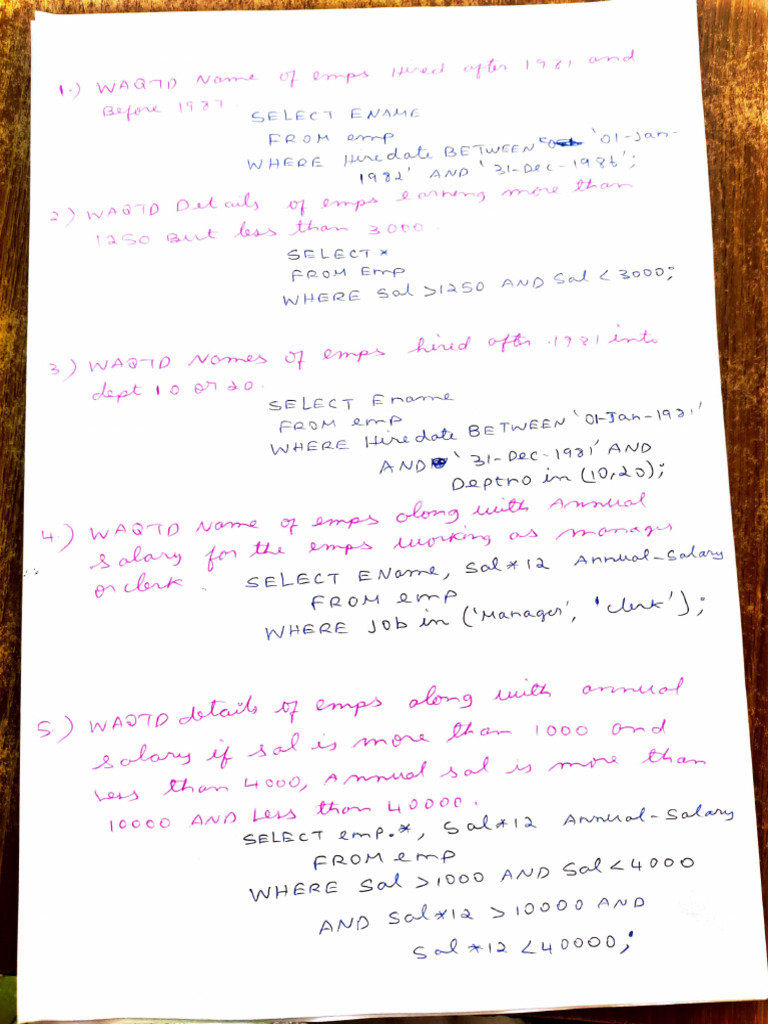 1.) WAQTD Name of emps Hired after 1981 and
Before 1987.
SELECT ENAME
FROM emp
WHERE Hiredate BETWEEN '01-Jan-
1982' AND '31-Dec-1986';
2) WAQTD Details of emps earning more than
1250 But less than 3000.
SELECT *
FROM Emp
WHERE Sal >1250 AND Sal < 3000;
3) WAQTD Names of emps hired after 1981 into
dept 10 or 20.
SELECT Ename
FROM emp
WHERE Hiredate BETWEEN '01-Jan-1981'
AND '31-Dec-1981' AND
Deptno in (10,20);
4.) WAQTD Name of emps along with Annual
Salary for the emps working as manager
or clerk.
SELECT EName, Sal*12 Annual-Salary
FROM emp
WHERE Job in ('Manager', 'clerk');
5.) WAQTD details of emps along with annual
salary if sal is more than 1000 and
Less than 4000, Annual sal is more than
10000 AND Less than 40000.
SELECT emp.*, Sal*12 Annual-Salary
FROM emp
WHERE Sal >1000 AND Sal < 4000
AND Sal*12 > 10000 AND
Sal *12 < 40000;